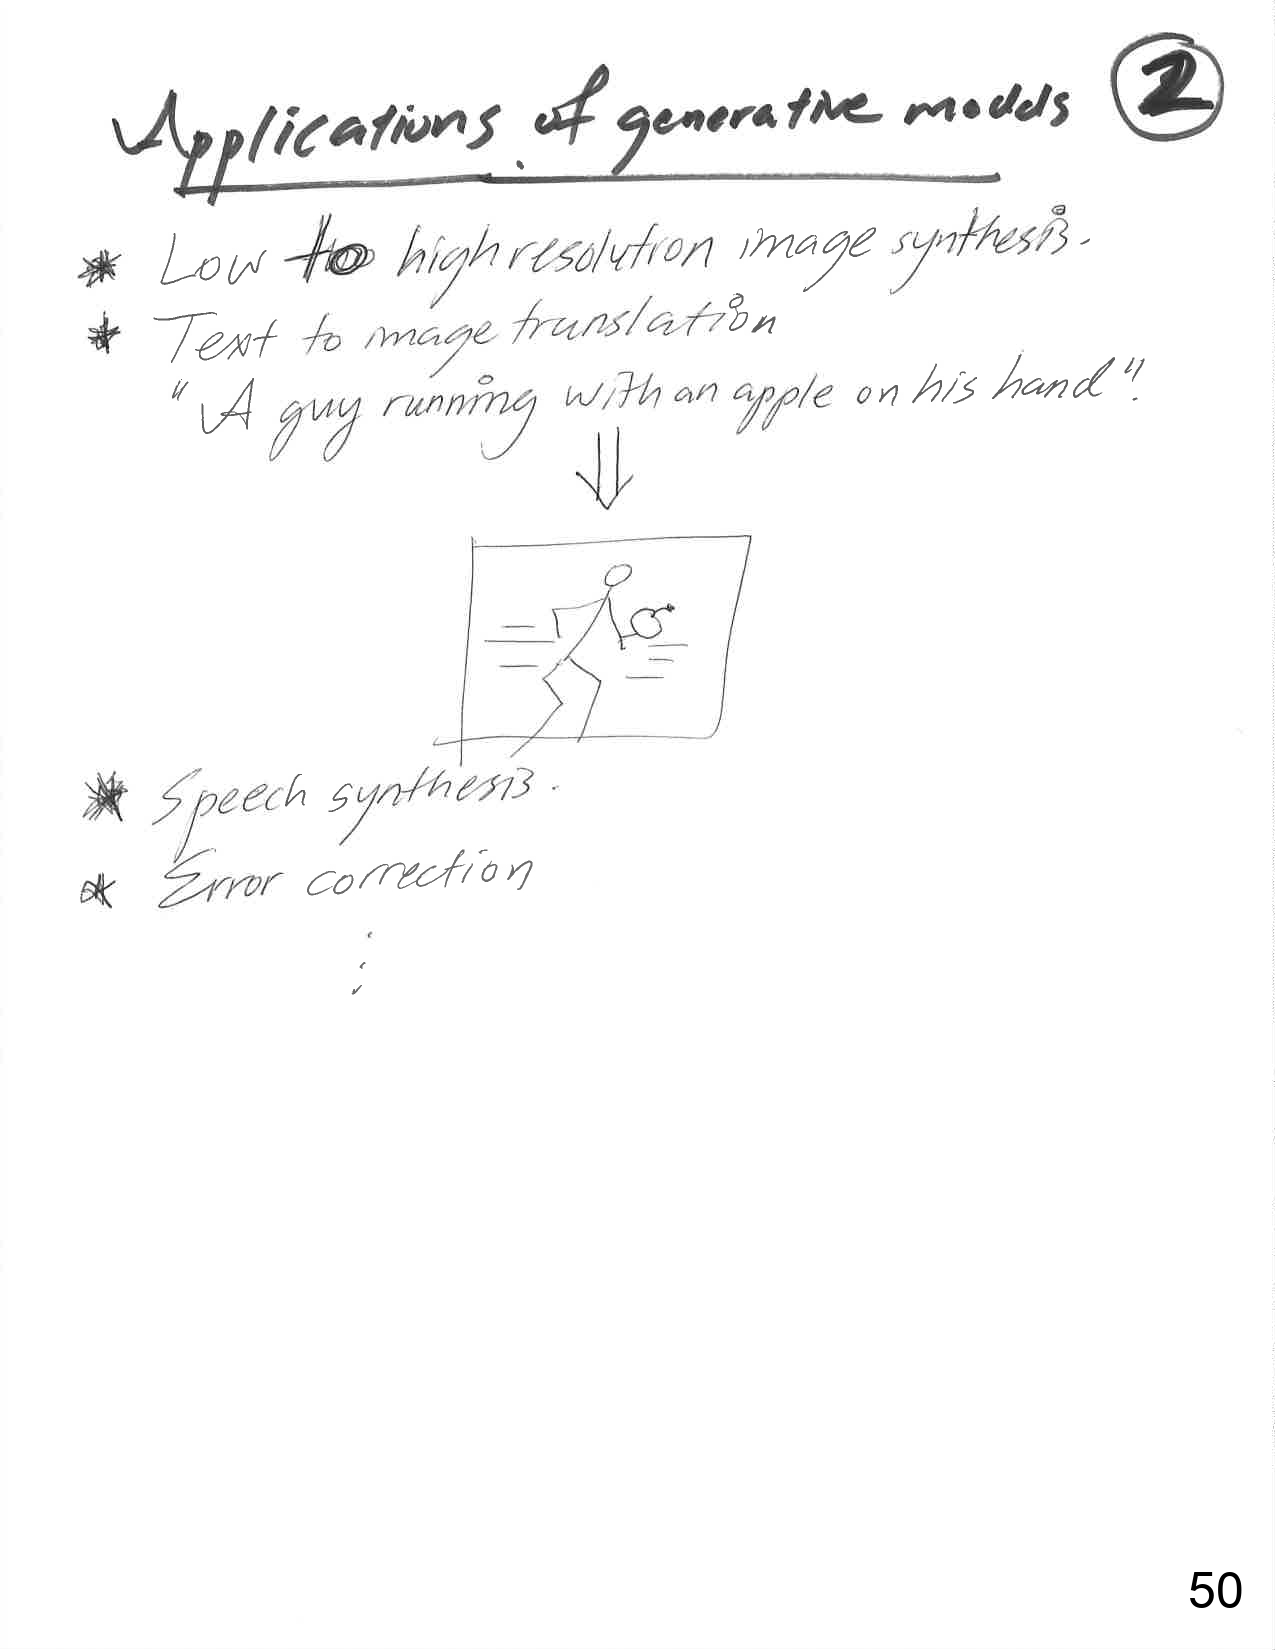 Applications of generative models
2
* Low to high resolution image synthesis.
* Text to image translation
"A guy running with an apple on his hand".
* Speech synthesis.
* Error correction
50